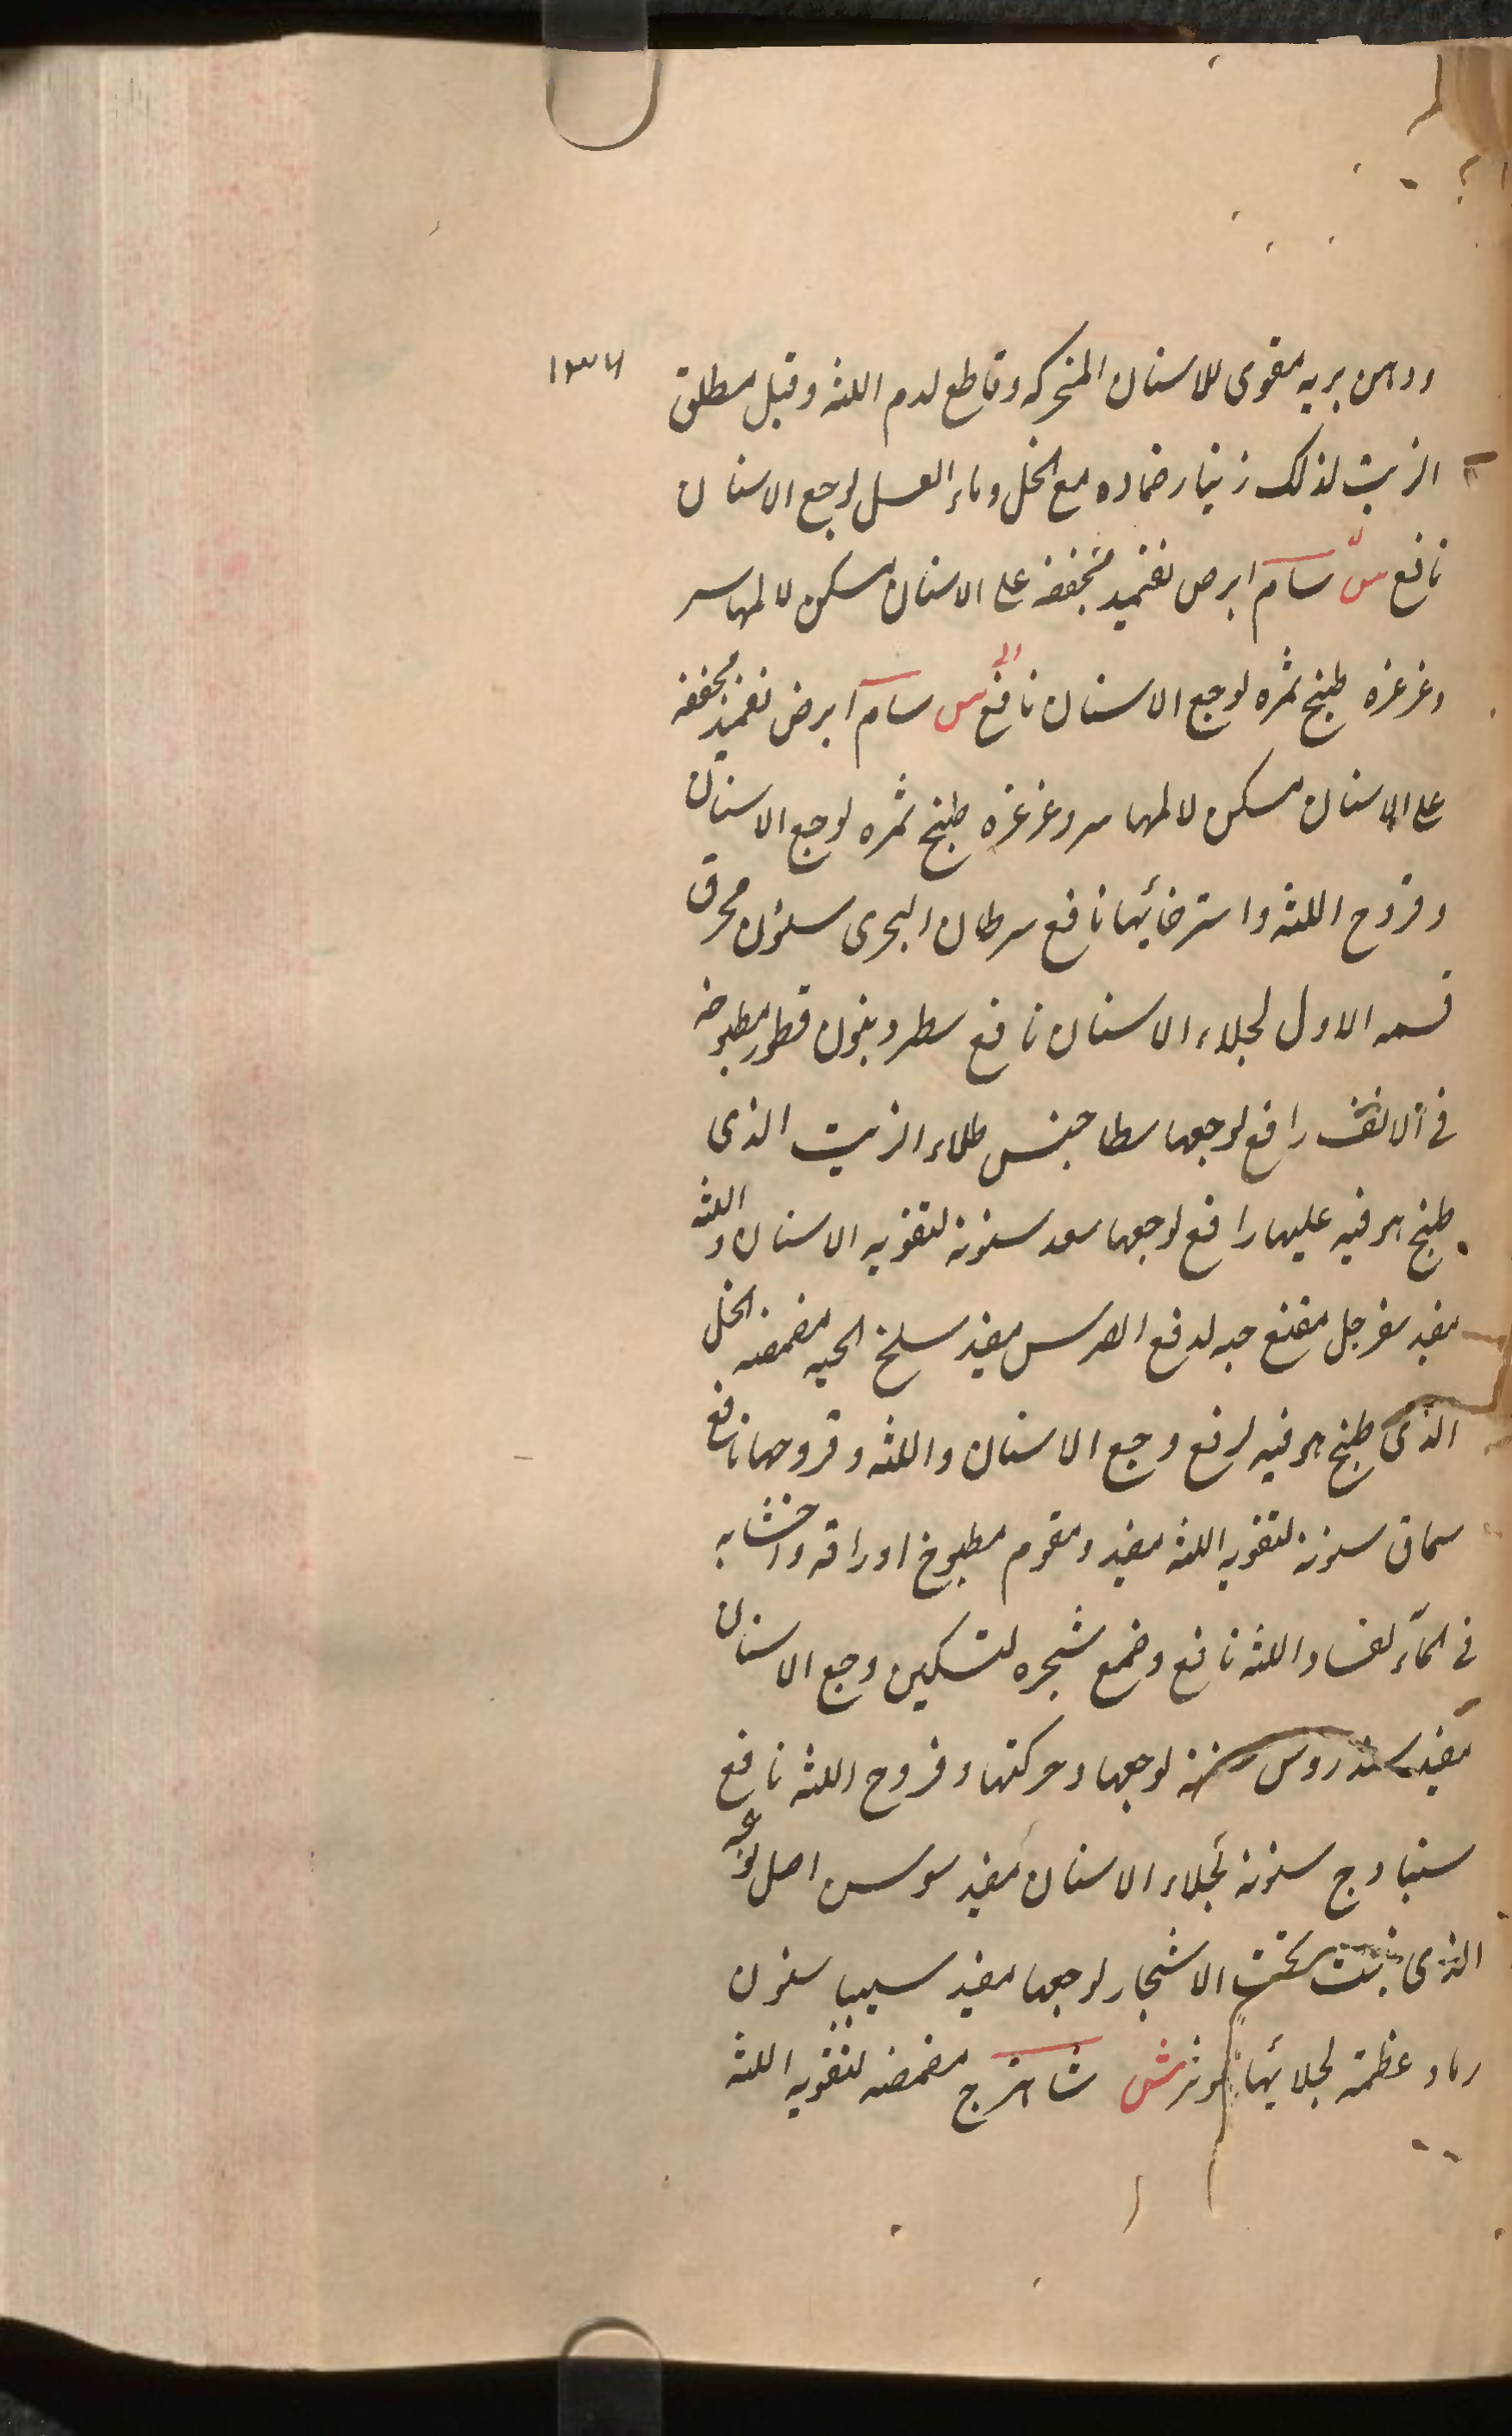 ودهن بريه مقوى للاسنان المتحركه وقاطع لدم اللثه وقيل مطلق ١٣٦
الزيت لذلك زنجار ضماده مع الخل وماء العسل لوجع الاسنان
نافع س سام ابرص تضميد مجففه على الاسنان مسكن لالمها سر
وغرغره طبخ ثمره لوجع الاسنان نافع الى س سام ابرض تضميد مجففه
على الاسنان مسكن لالمها سر وغرغره طبخ ثمره لوجع الاسنان
وقروح اللثه واسترخائها نافع سرطان البحرى سنون محرق
قسمه الاول لجلاء الاسنان نافع سطرونيون قطور مطبوخه
فى الانف رافع لوجعها سطاخيس طلاء الزيت الذى
طبخ هو فيه عليها رافع لوجعها سعد سنونه لتقويه الاسنان واللثه
مفيد سفرجل حبه لدفع الضرس مفيد سلخ الحيه مضمضه الخل
الذى طبخ هو فيه لرفع وجع الاسنان واللثه وقروحها نافع
سماق سنونه لتقويه اللثه مفيد ومقوم مطبوخ اوراقه واخشابه
فى الماء لفساد اللثه نافع وضمع شجره لتسكين وجع الاسنان
مفيد سندروس لوجعها وحركتها وقروح اللثه نافع
سنبادج سنونه لجلاء الاسنان مفيد سوسن اصل نوعه
الذى ينبت تحت الاشجار لوجعها مفيد سيبيا سنون
رماد عظمه لجلائها موثر ش شاهترج مضمضه لتقويه اللثه